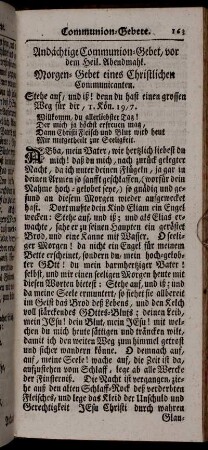 Communion-Gebete. 163
Andächtige Communion-Gebet, vor
dem Heil. Abendmahl.
Morgen-Gebet eines Christlichen
Communicanten.
Stehe auf, und iß! denn du hast einen grossen
Weg für dir, 1. Kön. 19, 7.
Willkomm, du allerliebster Tag!
Der mich so höchst erfreuen mag,
Dann Christi Fleisch und Blut wird heut
Mir mitgetheilt zur Seeligkeit.
Abba, mein Vater, wie hertzlich liebest du
mich! daß du mich, nach zurück gelegter
Nacht, da ich unter deinen Flügeln, ja gar in
deinen Armen so sanfft geschlaffen, (worfür dein
Nahme hoch-gelobet seye,) so gnädig und ge-
sund an diesem Morgen wiederum auferwecket
hast. Dort mußte dein Kind Elam ein Engel
wecken: Stehe auf, und iß; und als Elias er-
wachte, sahe er zu seinen Haupten ein geröstet
Brod, und eine Kanne mit Wasser. O seeli-
ger Morgen! da nicht ein Engel für meinem
Bette erscheinet, sondern du, mein hoch-gelob-
ter GOtt! du mein barmhertziger Vater!
selbst, und mir einen seeligen Morgen heute mit
diesen Worten bietest: Stehe auf, und iß; und
da meine Seele ermuntert, so siehet sie allbereit
im Geist das Brod des Lebens, und den Kelch
voll stärckendes GOttes-Bluts: deinen Leib,
mein JEsu! dein Blut, mein JEsu! mit wel-
chen du mich heute sättigen und träncken wilt,
damit ich den weiten Weg zum Himmel getrost
und sicher wandern könne. O demnach auf,
auf, meine Seele! wache auf, die Zeit ist da,
aufzustehen vom Schlaff, lege ab alle Wercke
der Finsterniß. Die Nacht ist vergangen, zie-
he aus den alten Schlaff-Rock des verderbten
Fleisches, und lege das Kleid der Unschuld und
Gerechtigkeit JEsu Christi durch wahren
Glau-